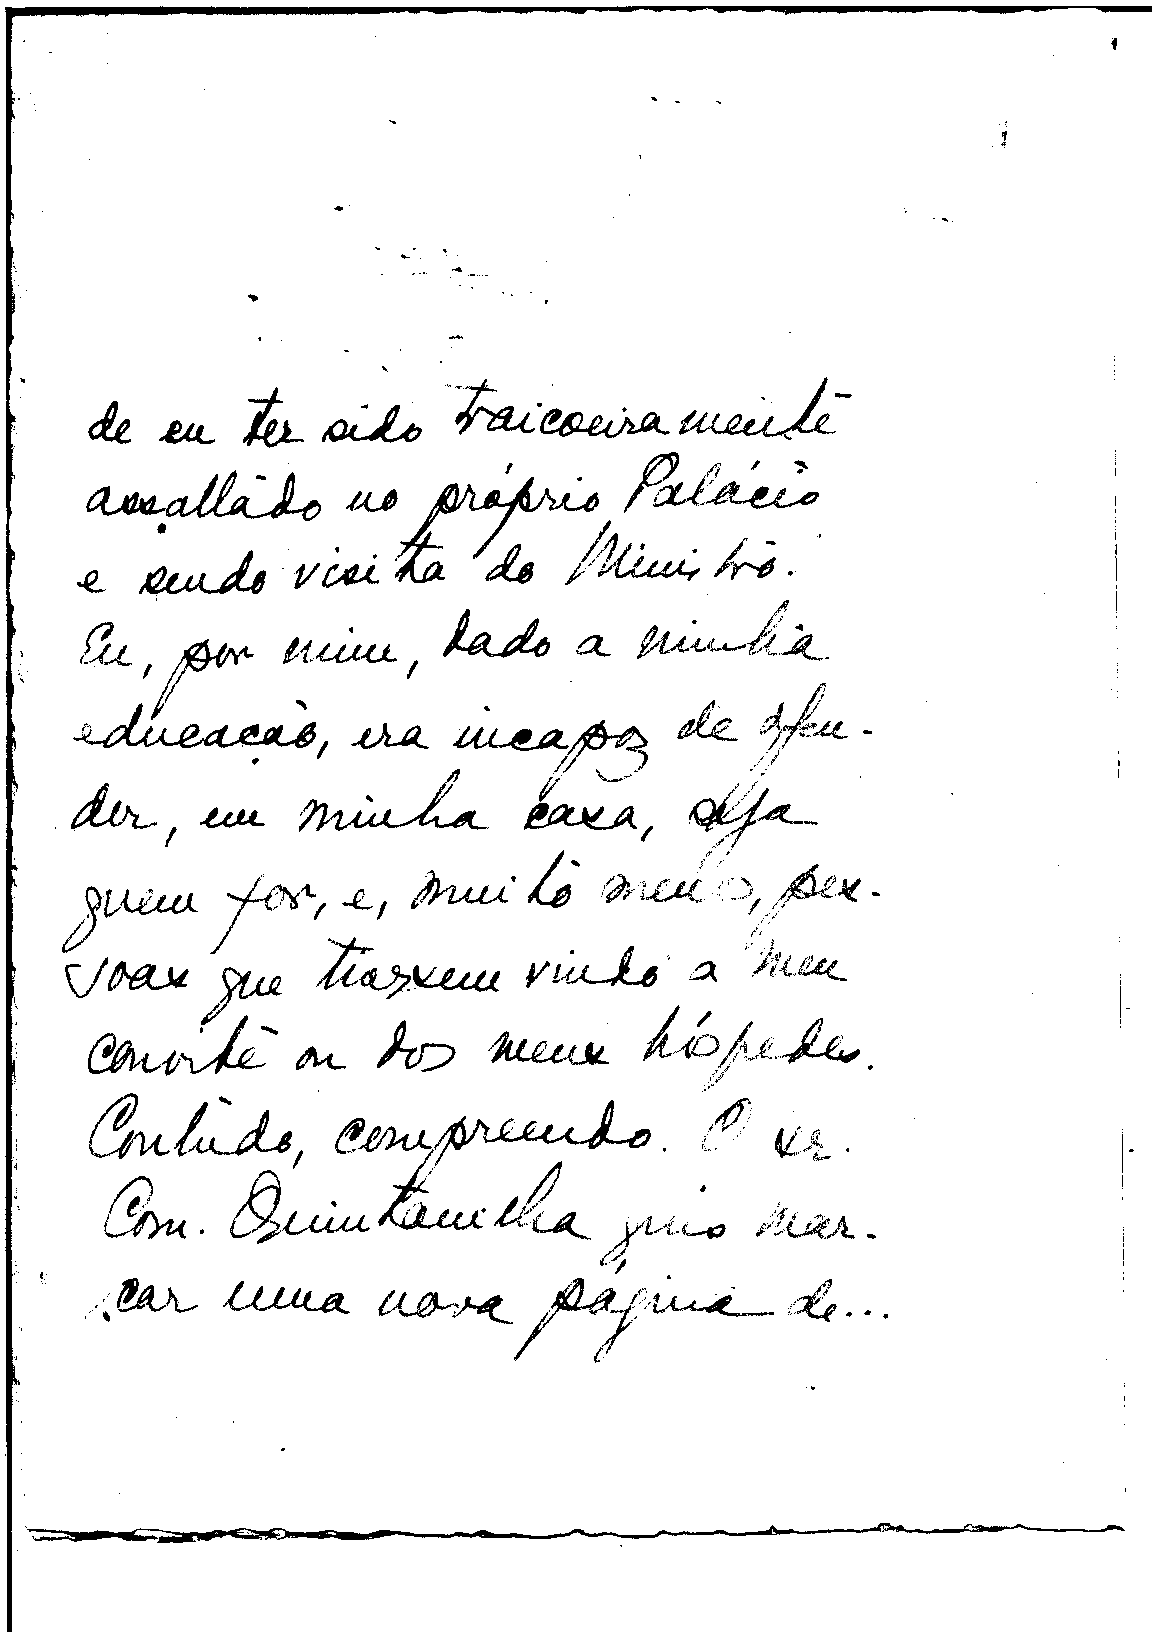 de eu ter sido traiçoeiramente
assaltado no próprio Palácio
e sendo visita do Ministro.
Eu, por mim, dado a minha
educação, era incapaz de ofen-
der, em minha casa, seja
quem for, e, muito menos, pes-
soas que tivessem vindo a meu
convite ou dos meus hóspedes.
Contudo, compreendo. O sr.
Com. Quintanilha quis mar-
car uma nova página de...